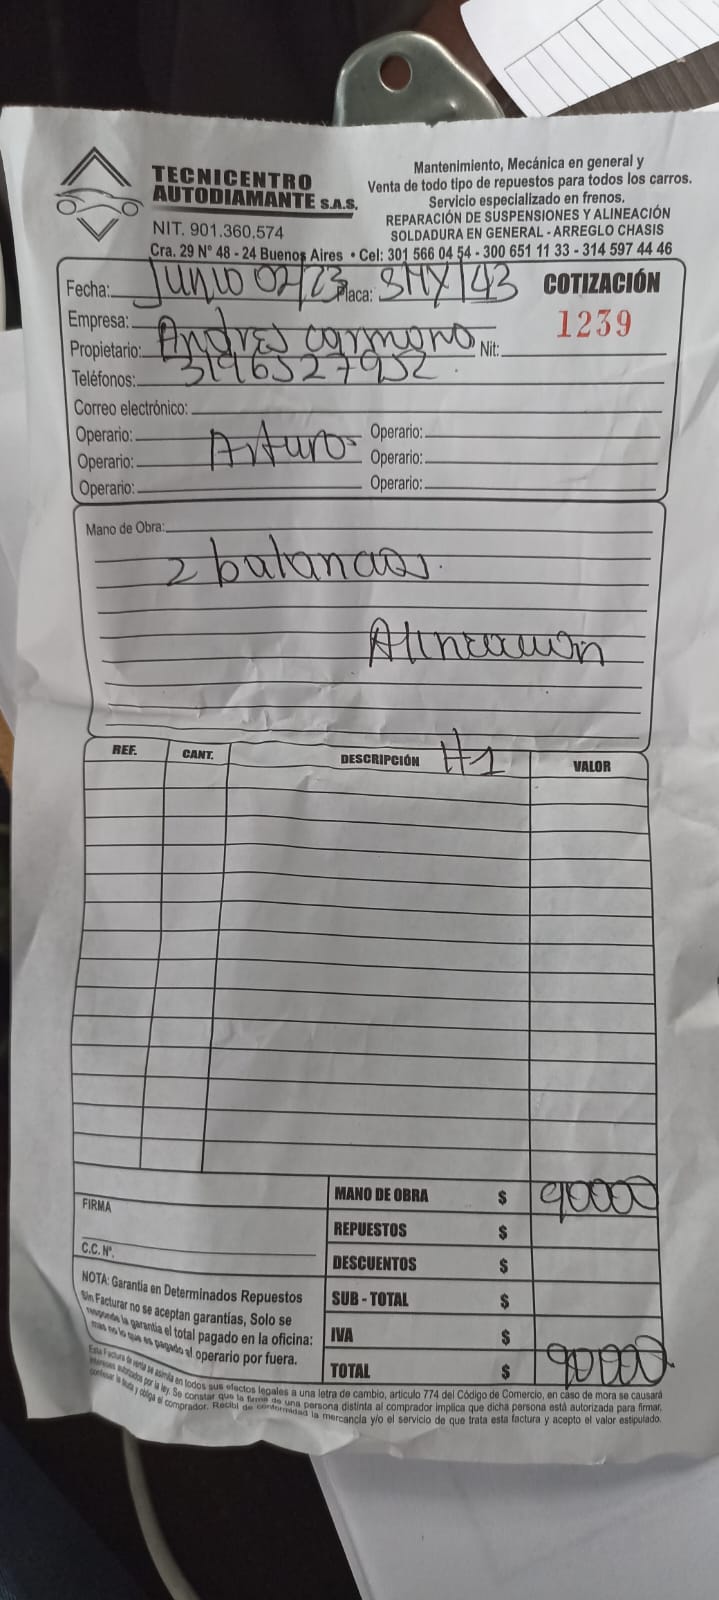 TECNICENTRO
AUTODIAMANTE S.A.S.
NIT. 901.360.574
Mantenimiento, Mecánica en general y
Venta de todo tipo de repuestos para todos los carros.
Servicio especializado en frenos.
REPARACIÓN DE SUSPENSIONES Y ALINEACIÓN
SOLDADURA EN GENERAL - ARREGLO CHASIS
Cra. 29 N° 48 - 24 Buenos Aires • Cel: 301 566 04 54 - 300 651 11 33 - 314 597 44 46
Fecha: Junio 02/23 Placa: SMX143 COTIZACIÓN
Empresa: 1239
Propietario: Andres Carmona Nit:
Teléfonos: 3196527952
Correo electrónico:
Operario: Operario:
Operario: Arturo Operario:
Operario: Operario:
Mano de Obra:
2 balanceos.
Alineacion
REF. CANT. DESCRIPCIÓN #1 VALOR
FIRMA
C.C. N°.
NOTA: Garantía en Determinados Repuestos
Sin Facturar no se aceptan garantías, Solo se
responde la garantia el total pagado en la oficina:
mas no lo que es pagado al operario por fuera.
MANO DE OBRA $ 90000
REPUESTOS $
DESCUENTOS $
SUB - TOTAL $
IVA $
TOTAL $ 90000
Esta Factura de venta se asimila en todos sus efectos legales a una letra de cambio, articulo 774 del Código de Comercio, en caso de mora se causará
intereses autorizados por la ley. Se constar que la firma de una persona distinta al comprador implica que dicha persona está autorizada para firmar,
confesar la deuda y obliga el comprador. Recibí de conformidad la mercancía y/o el servicio de que trata esta factura y acepto el valor estipulado.